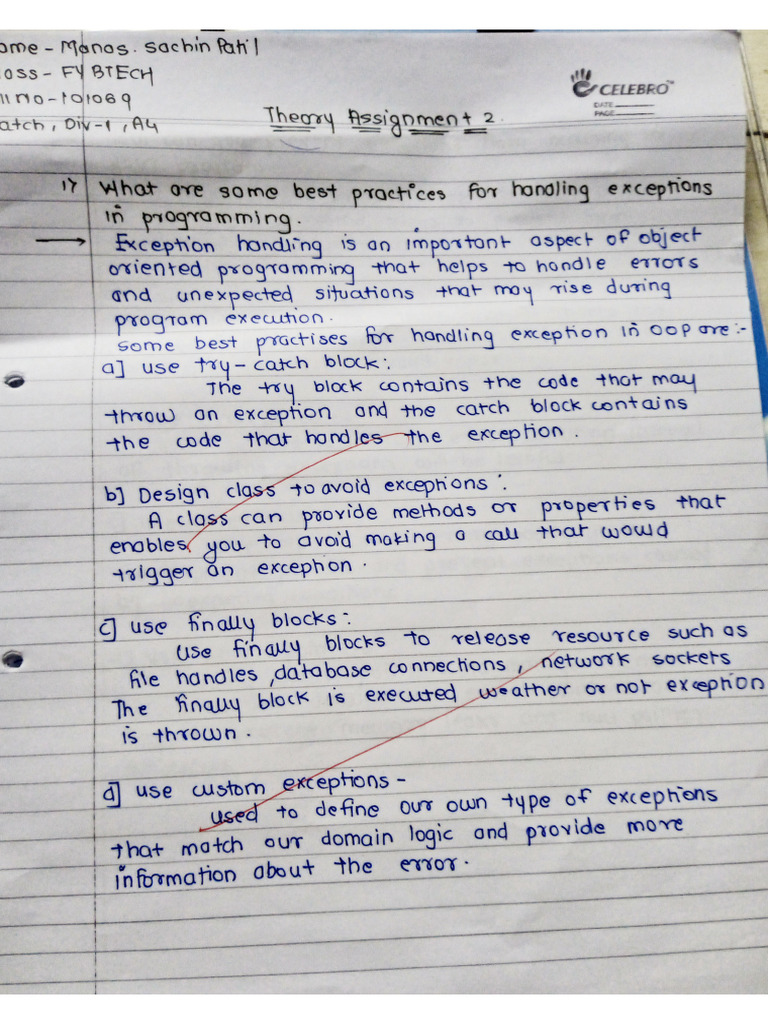 ame - Manas. Sachin Patil
lass - FY BTECH
ll no - 101069
atch, Div-1, A4
CELEBRO™
DATE
PAGE
Theory Assignment 2.
1) What are some best practices for handling exceptions
in programming.
→ Exception handling is an important aspect of object
oriented programming that helps to handle errors
and unexpected situations that may rise during
program execution.
Some best practises for handling exception in OOP are:-
a] use try-catch block:
The try block contains the code that may
throw an exception and the catch block contains
the code that handles the exception.
b] Design class to avoid exceptions:
A class can provide methods or properties that
enables you to avoid making a call that would
trigger an exception.
c] use finally blocks:
use finally blocks to release resource such as
file handles, database connections, network sockets
The finally block is executed weather or not exception
is thrown.
d] use custom exceptions -
used to define our own type of exceptions
that match our domain logic and provide more
information about the error.